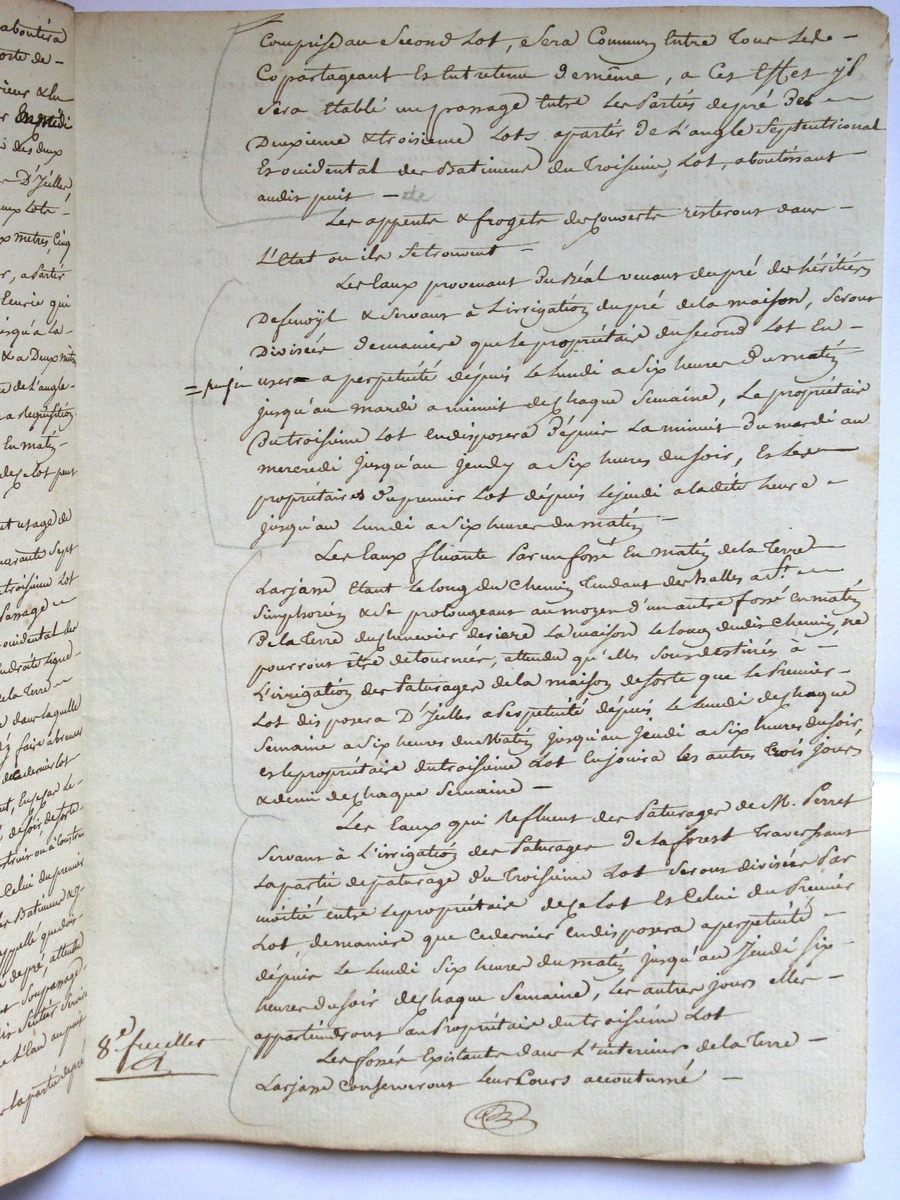 aboutira
orte de -
rieur & la
r En midi
s des deux
e D'Icelles,
aux Lots -
x metres, Cinq
r, a Partir
leurie qui
usqu'a la -
& a Deux mètres
e de L'angle -
a requisition
En matin -
de ce Lot peut
ut usage de
uarante Sept
troisieme Lot
Passage -
occidental des
endroite Ligne
de la Terre -
e dans laquelle
faire abreuver
de ce dernier lot
Celui du premier
es Batimens &
appellé que dir
de pré, attendu
Son passage
L'Eau au puit
la partie de pré
Comprise au Second Lot, Sera Commun Entre Tous Les de -
Copartageant Et Entretenu De même, a Cet Effet yl
Sera Etabli un passage Entre Les Parties de pré des -
Deuxieme & troisieme Lots apartir De L'angle Septentrional
Et occidental des Batimens du Troisieme Lot, aboutissant
audit puit -
Les appents & frogets des couverts resteront dans -
L'Etat ou ils Se trouvent -
Les Eaux provenant Du Béal venant du pré des héritiers
Defenoÿl & Servant à L'irrigation du pré de la maison, Seront
Divisées de maniere que Le propriétaire du Second Lot En -
usera a perpetuité depuis Le Lundi a Six heures du matin
jusqu'au mardi a minuit de Chaque Semaine, Le propriétaire
Du troisieme Lot En disposera Depuis La minuit Du mardi au
mercredi jusqu'au Jeudy a Six heures du Soir, Et Les -
propriétaires du premier Lot depuis Le jeudi a la dite heure -
jusqu'au Lundi a Six heures du matin -
Les Eaux fluante Par un fossé En matin de la Terre
Larjasse Etant Le Long du Chemin Tendant des halles a St. -
Simphorien & Se prolongeant au moyen d'un autre fossé en matin
De la Terre du chenevier deriere La maison Le Long dudit Chemin, ne
pourront être detournées, attendu qu'elles Sont destinées à -
L'irrigation des Paturages de la maison de sorte que Le Premier -
Lot disposera D'Icelles a Perpetuité depuis Le Lundi de Chaque
Semaine a Six heures du Matin jusqu'au Jeudi a Six heures du Soir,
et le propriétaire du troisieme Lot En jouira Les autres trois jours
& demi de Chaque Semaine -
Les Eaux qui Refluent des Paturages de M. Perret
Servant à L'irrigation des Paturages De la forest Traversant
La partie de paturage Du Troisieme Lot Seront divisées Par
moitié entre Le propriétaire de ce Lot Et Celui du Premier
Lot, de maniere que ce dernier en disposera a perpetuité -
depuis Le Lundi Six heures du matin jusqu'au Jeudi Six -
heures du Soir de Chaque Semaine, Les autres jours Elles -
appartiendront au Propriétaire du troisieme Lot
Les fossés Existants dans L'interieur de la Terre -
Larjasse Conserveront Leur Cours accoutumé -
8e. feuillet